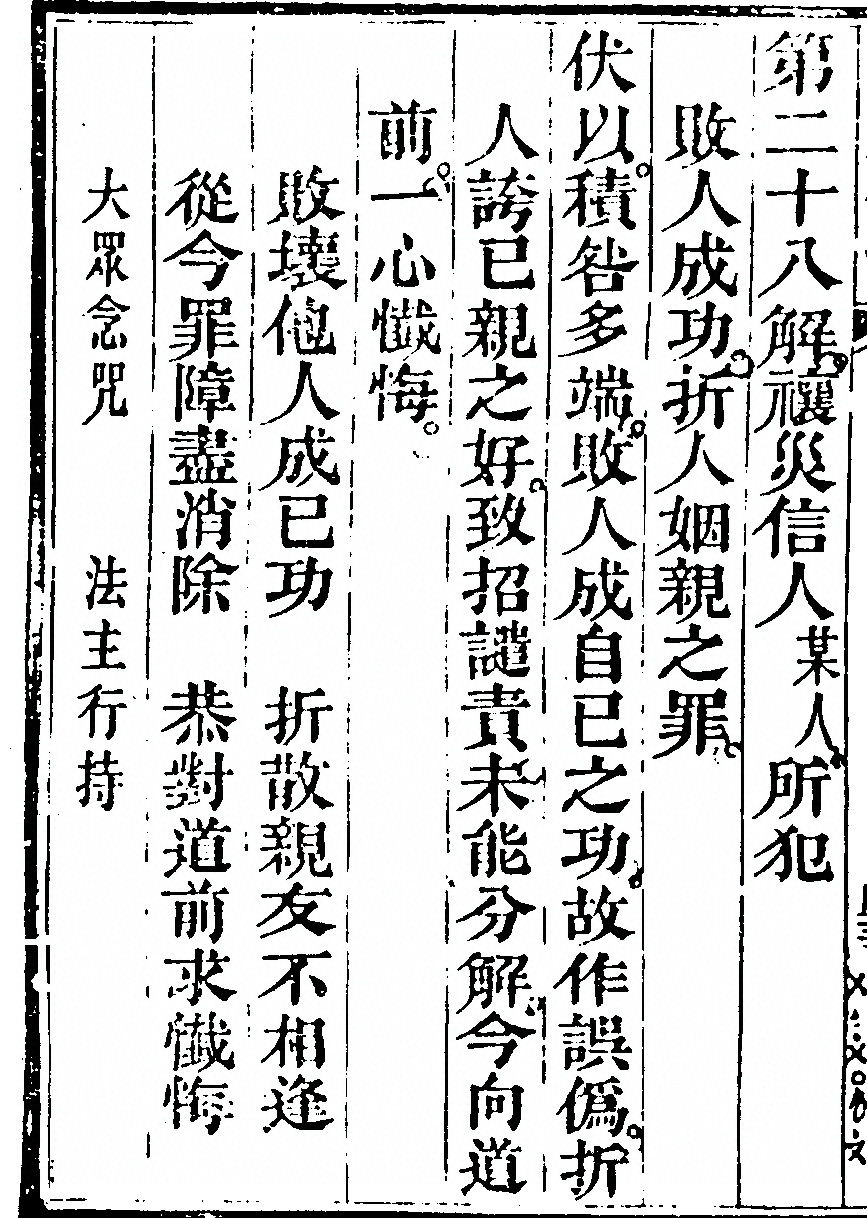 第二十八解禳災信人某人所犯
敗人成功折人姻親之罪
伏以積咎多端敗人成自已之功故作誤僞折
人誇已親之好致招譴責未能分解今向道
前一心懺悔
敗壞他人成已功　折散親友不相逢
從今罪障盡消除　恭對道前求懺悔
大眾念咒　法主行持